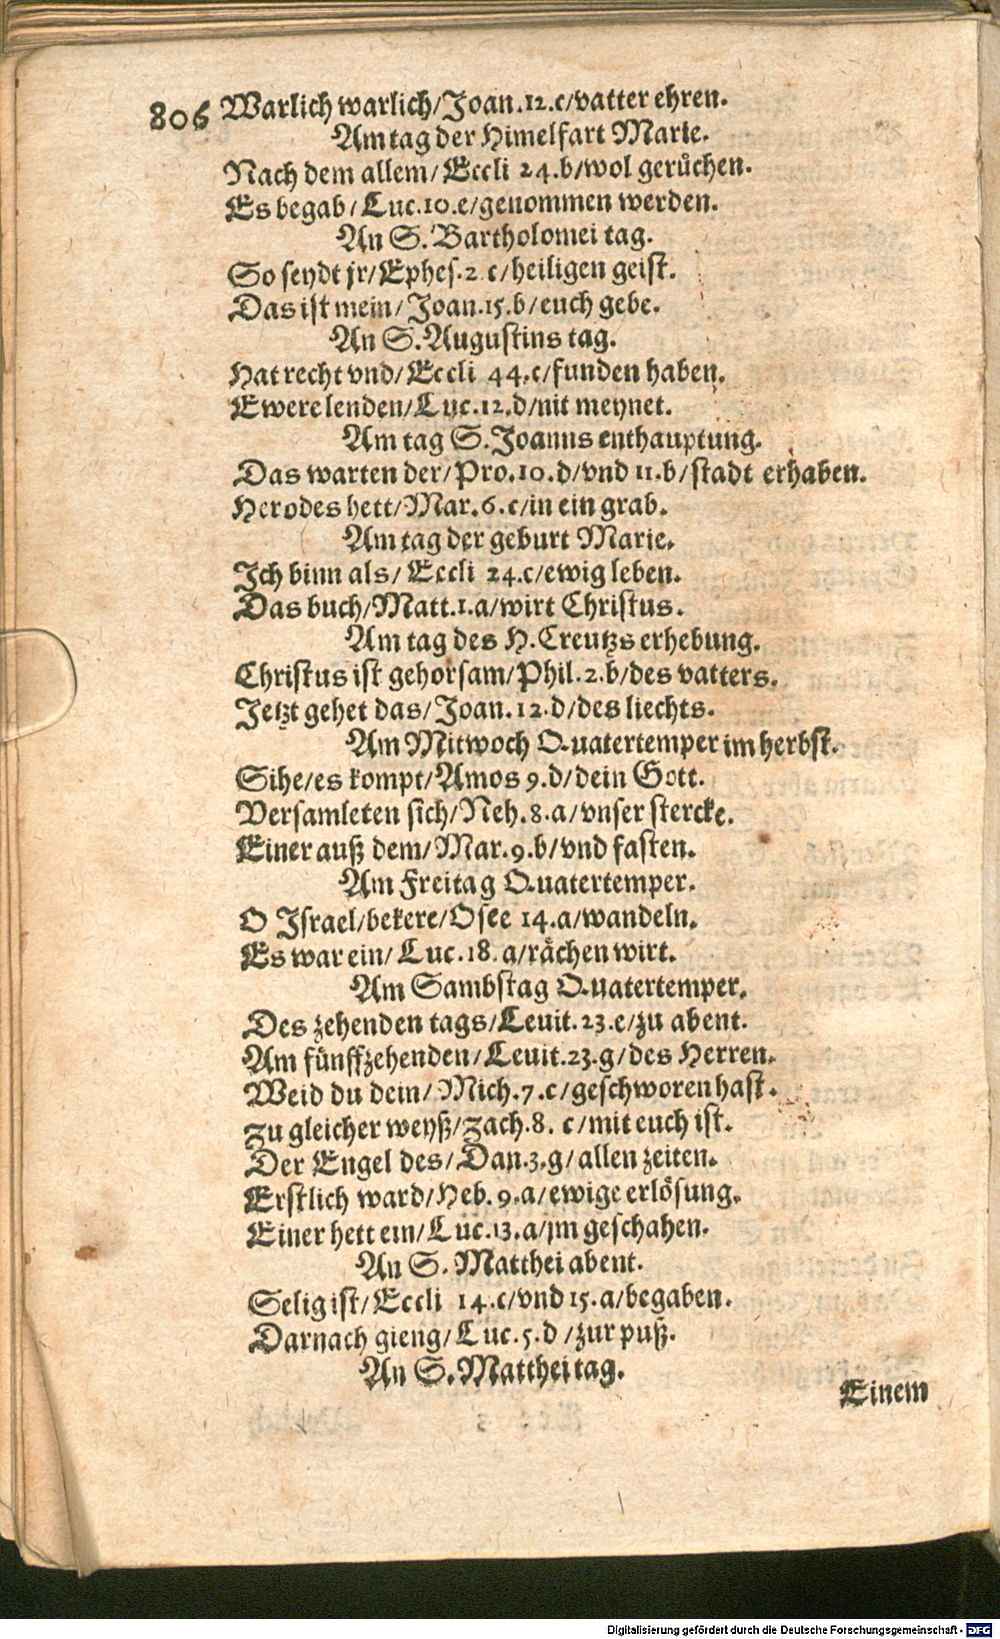 806 Warlich warlich/Joan.12.c/vatter ehren.
Am tag der Himelfart Marie.
Nach dem allem/Eccli 24.b/wol gerüchen.
Es begab/Luc.10.e/genommen werden.
An S.Bartholomei tag.
So seydt jr/Ephes.2 c/heiligen geist.
Das ist mein/Joan.15.b/euch gebe.
An S.Augustins tag.
Hat recht vnd/Eccli 44.c/funden haben.
Ewere lenden/Luc.12.d/nit meynet.
Am tag S.Joanns enthauptung.
Das warten der/Pro.10.d/vnd 11.b/stadt erhaben.
Herodes hett/Mar.6.c/in ein grab.
Am tag der geburt Marie.
Ich binn als/Eccli 24.c/ewig leben.
Das buch/Matt.1.a/wirt Christus.
Am tag des H.Creutzs erhebung.
Christus ist gehorsam/Phil.2.b/des vatters.
Jetzt gehet das/Joan.12.d/des liechts.
Am Mitwoch Quatertemper im herbst.
Sihe/es kompt/Amos 9.d/dein Gott.
Versamleten sich/Neh.8.a/vnser stercke.
Einer auß dem/Mar.9.b/vnd fasten.
Am Freitag Quatertemper.
O Israel/bekere/Osee 14.a/wandeln.
Es war ein/Luc.18.a/rächen wirt.
Am Sambstag Quatertemper.
Des zehenden tags/Leuit.23.e/zu abent.
Am fünffzehenden/Leuit.23.g/des Herren.
Weid du dein/Mich.7.c/geschworen hast.
Zu gleicher weyß/Zach.8. c/mit euch ist.
Der Engel des/Dan.3.g/allen zeiten.
Erstlich ward/Heb.9.a/ewige erlösung.
Einer hett ein/Luc.13.a/jm geschahen.
An S.Matthei abent.
Selig ist/Eccli 14.c/vnd 15.a/begaben.
Darnach gieng/Luc.5.d/zur puß.
An S.Matthei tag.
Einem
Digitalisierung gefördert durch die Deutsche Forschungsgemeinschaft - DFG